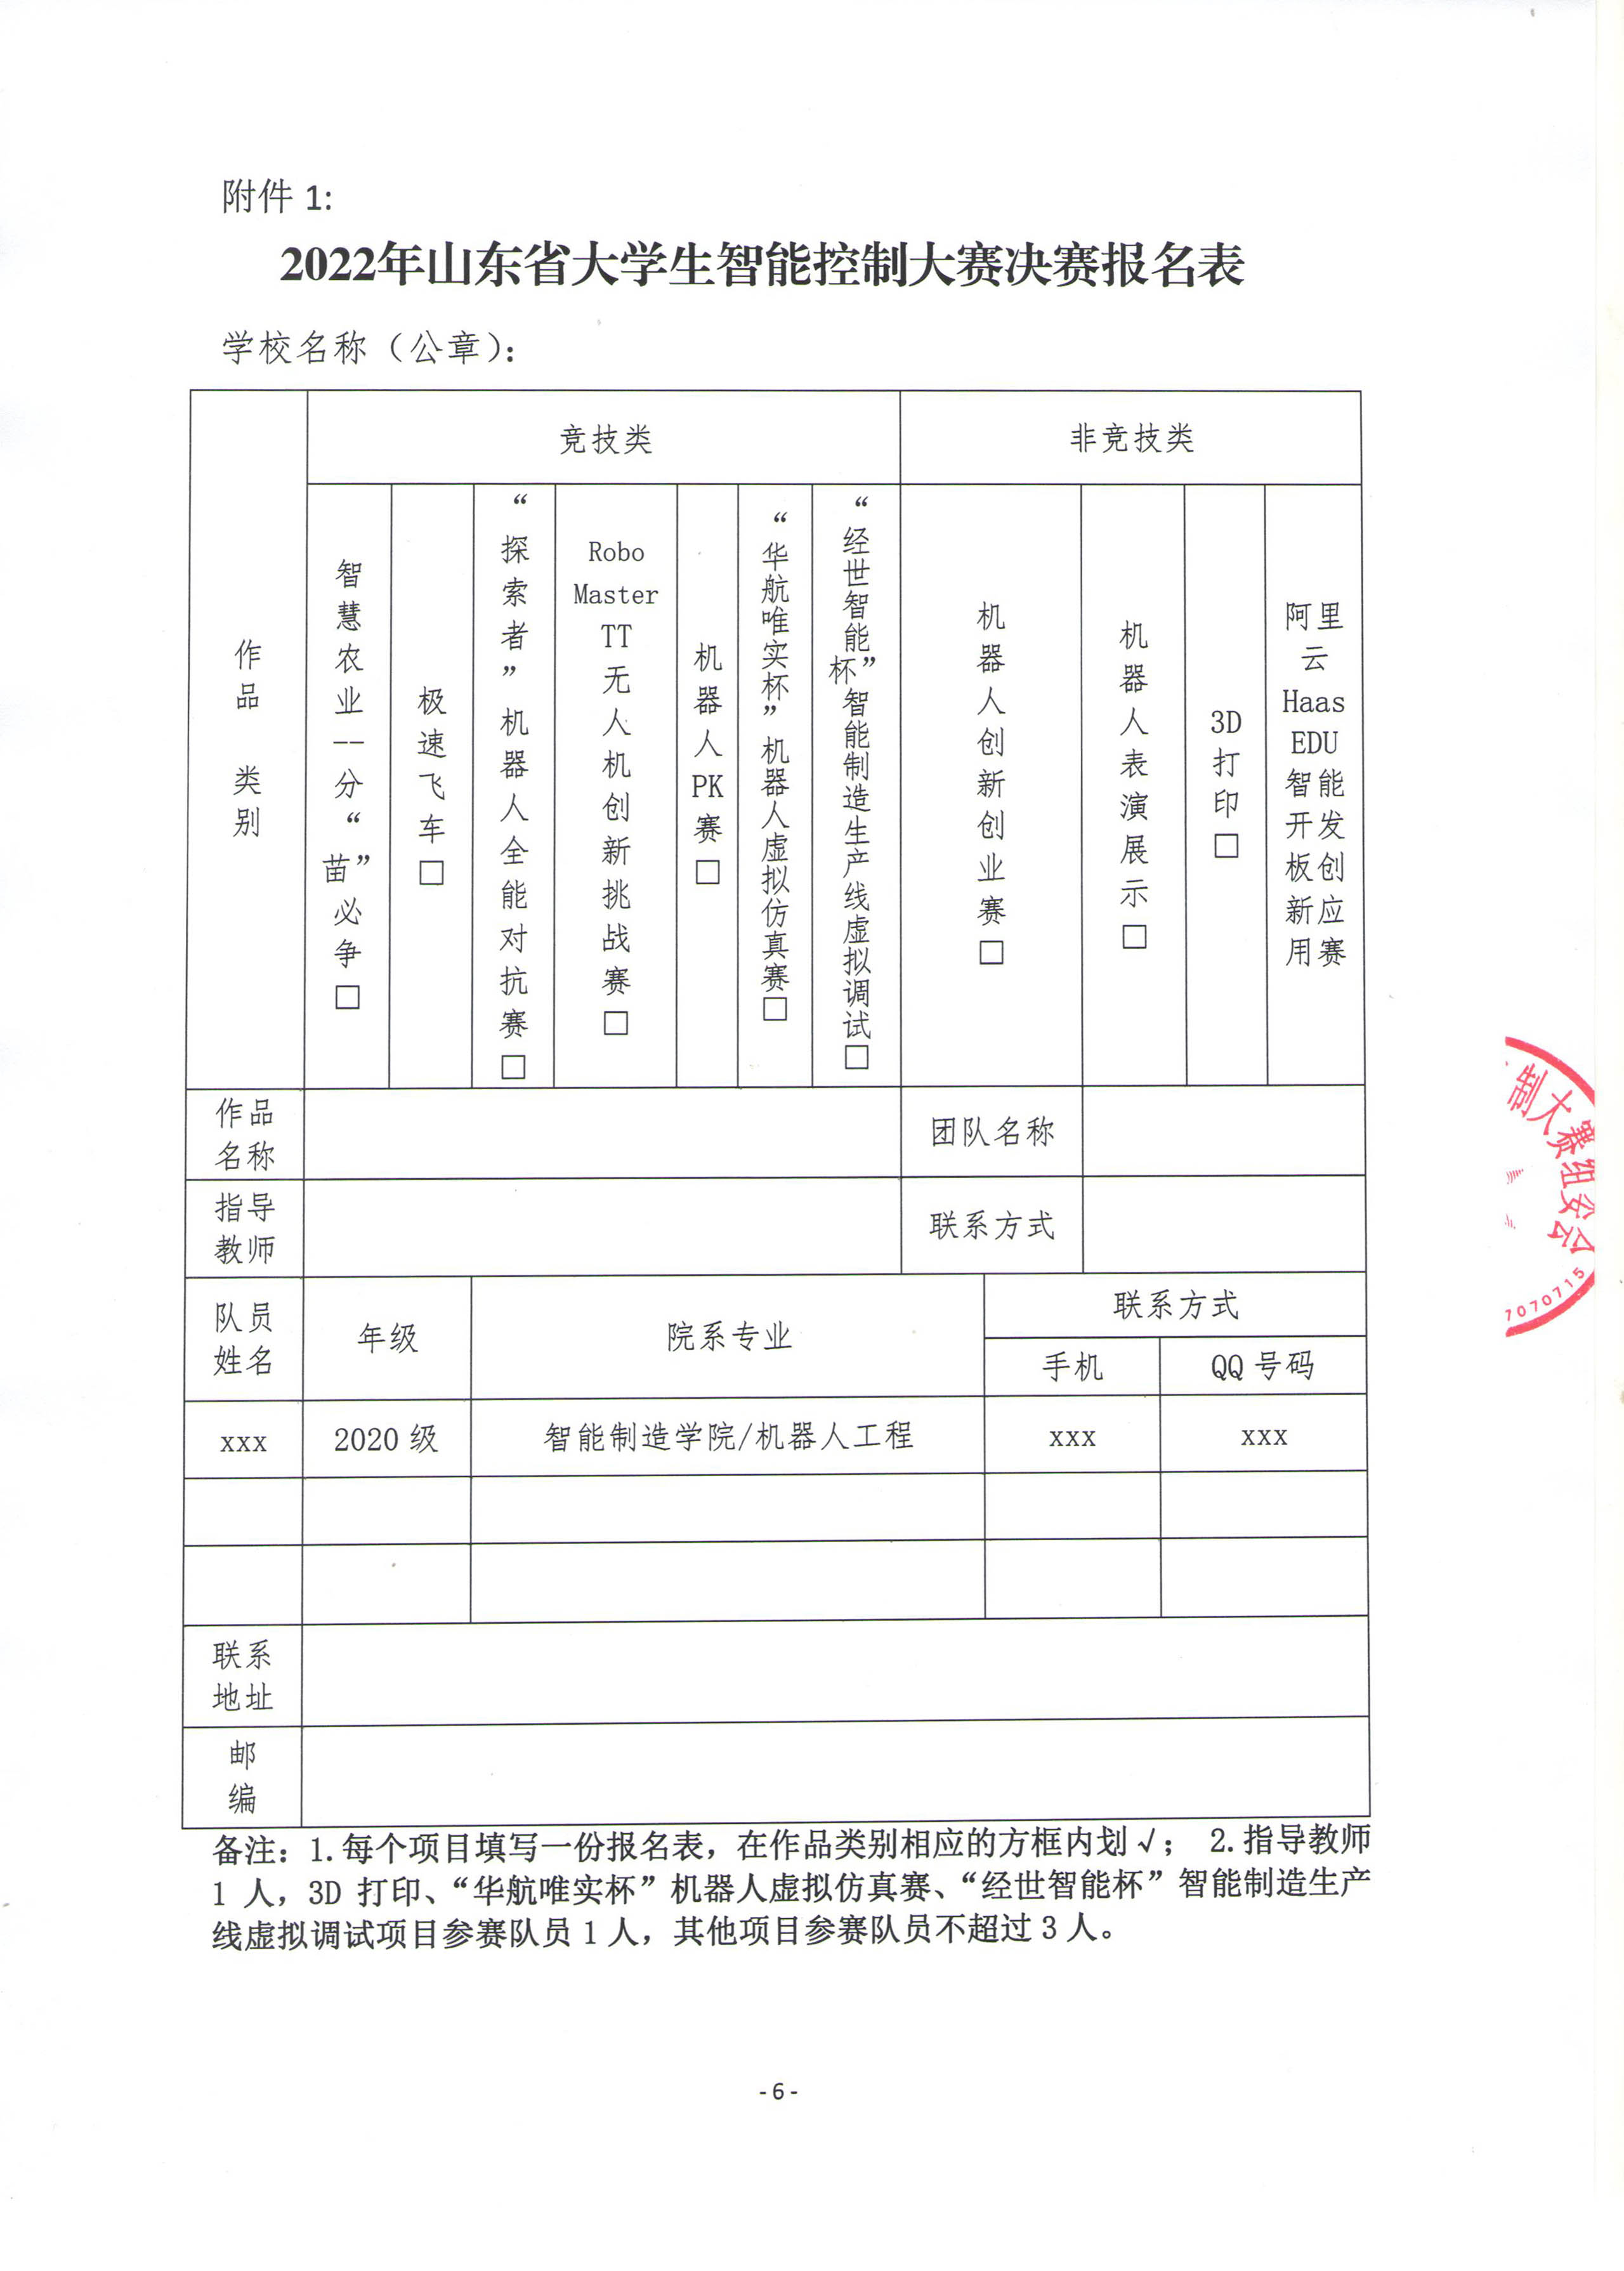 附件 1:
2022年山东省大学生智能控制大赛决赛报名表
学校名称（公章）：
作品 类别
竞技类
非竞技类
智慧农业--分“苗”必争□
极速飞车□
“探索者”机器人全能对抗赛□
Robo Master TT 无人机创新挑战赛□
机器人PK赛□
“华航唯实杯”机器人虚拟仿真赛□
“经世智能杯”智能制造生产线虚拟调试□
机器人创新创业赛□
机器人表演展示□
3D打印□
阿里云 Haas EDU 智能开发板创新应用赛
作品名称
团队名称
指导教师
联系方式
队员姓名
年级
院系专业
联系方式
手机
QQ 号码
xxx
2020 级
智能制造学院/机器人工程
xxx
xxx
联系地址
邮编
备注：1.每个项目填写一份报名表，在作品类别相应的方框内划√； 2.指导教师
1 人，3D 打印、“华航唯实杯”机器人虚拟仿真赛、“经世智能杯”智能制造生产
线虚拟调试项目参赛队员 1 人，其他项目参赛队员不超过 3 人。
制大赛组委会
7070715
- 6 -